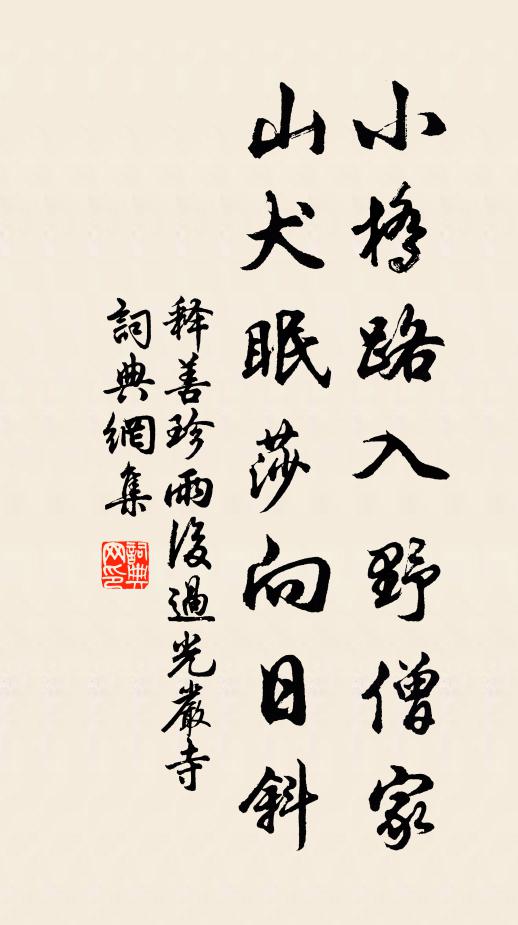 小橋路入野僧家
山犬眠莎向日斜
释善珍雨後過光嚴寺
詞典網集
詞典网印